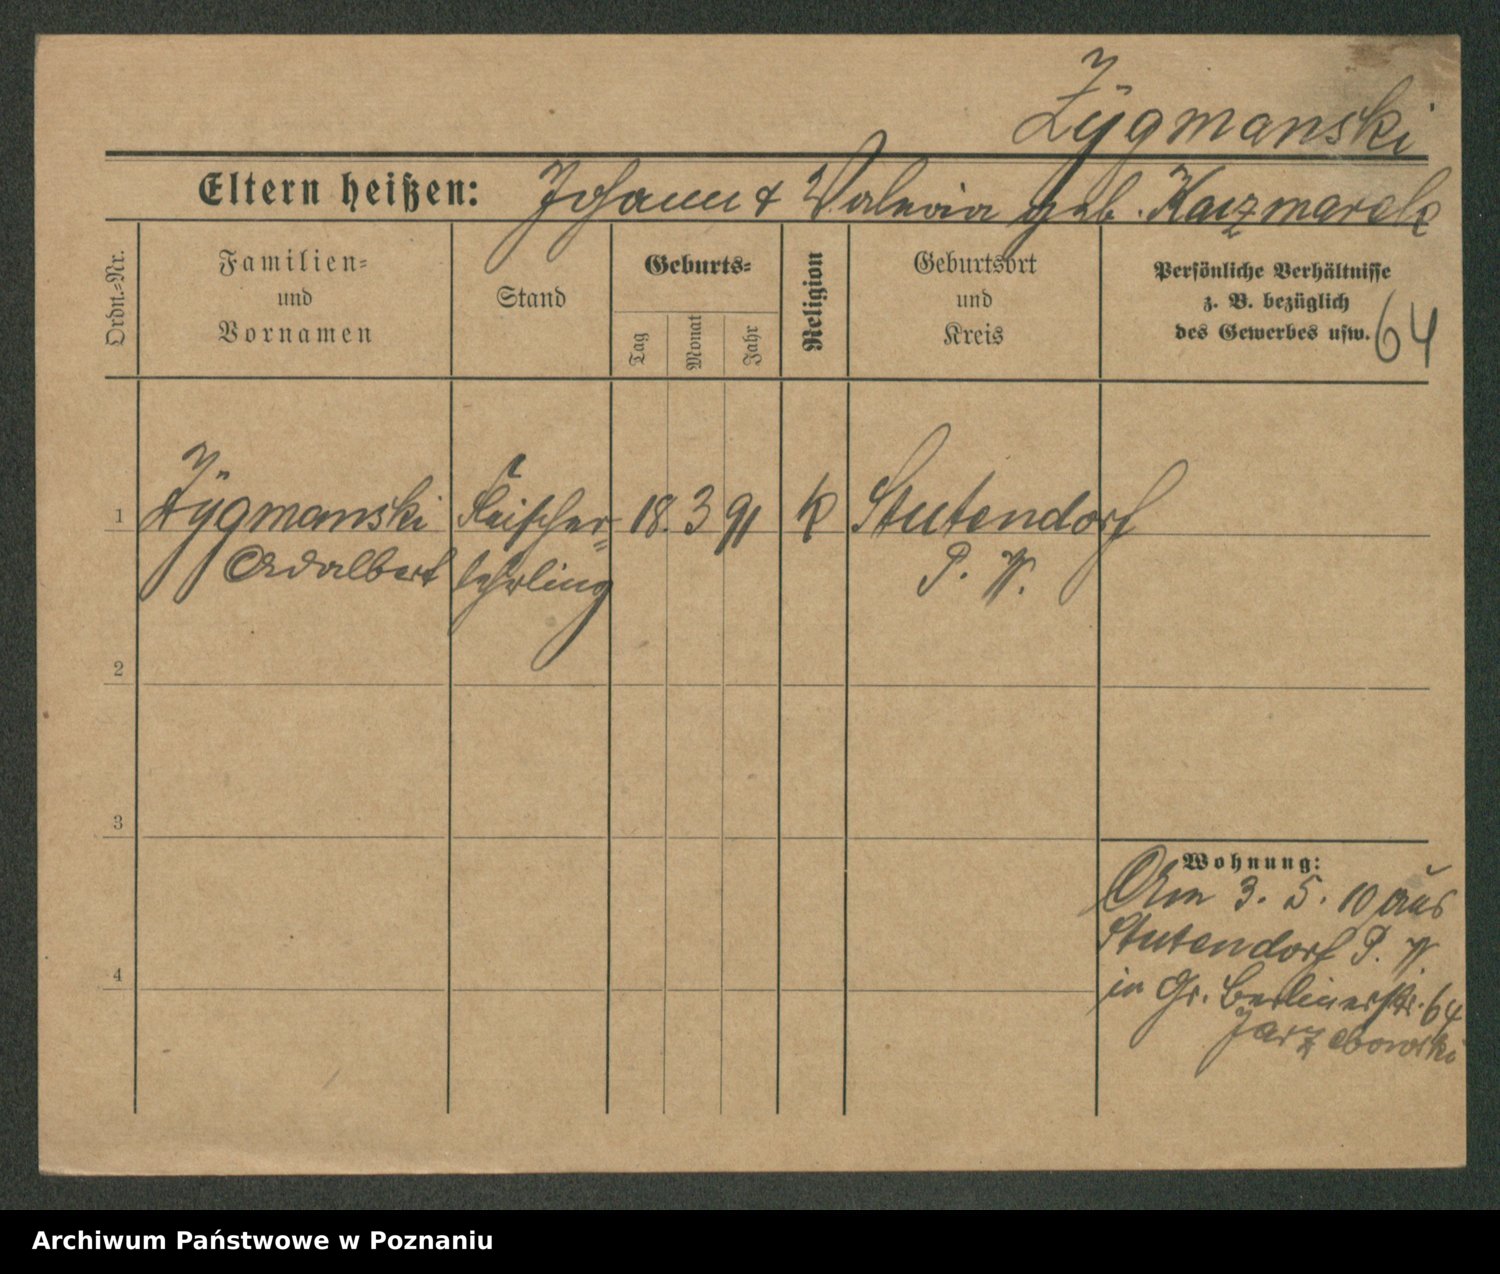 Zÿgmanski
Eltern heißen: Johann & Valeria geb. Kaczmarek
Ordn.-Nr.
Familien-
und
Vornamen
Stand
Geburts-
Tag
Monat
Jahr
Religion
Geburtsort
und
Kreis
Persönliche Verhältnisse
z. B. bezüglich
des Gewerbes usw.
64
1 Zÿgmanski Fleischer- 18. 3 91 k Stutendorf
Adalbert lehrling P. W.
2
3
4
Wohnung:
Am 3. 5. 10 aus
Stutendorf P. W.
in Gr. Berlinerstr. 64
Jarzebowski
Archiwum Państwowe w Poznaniu